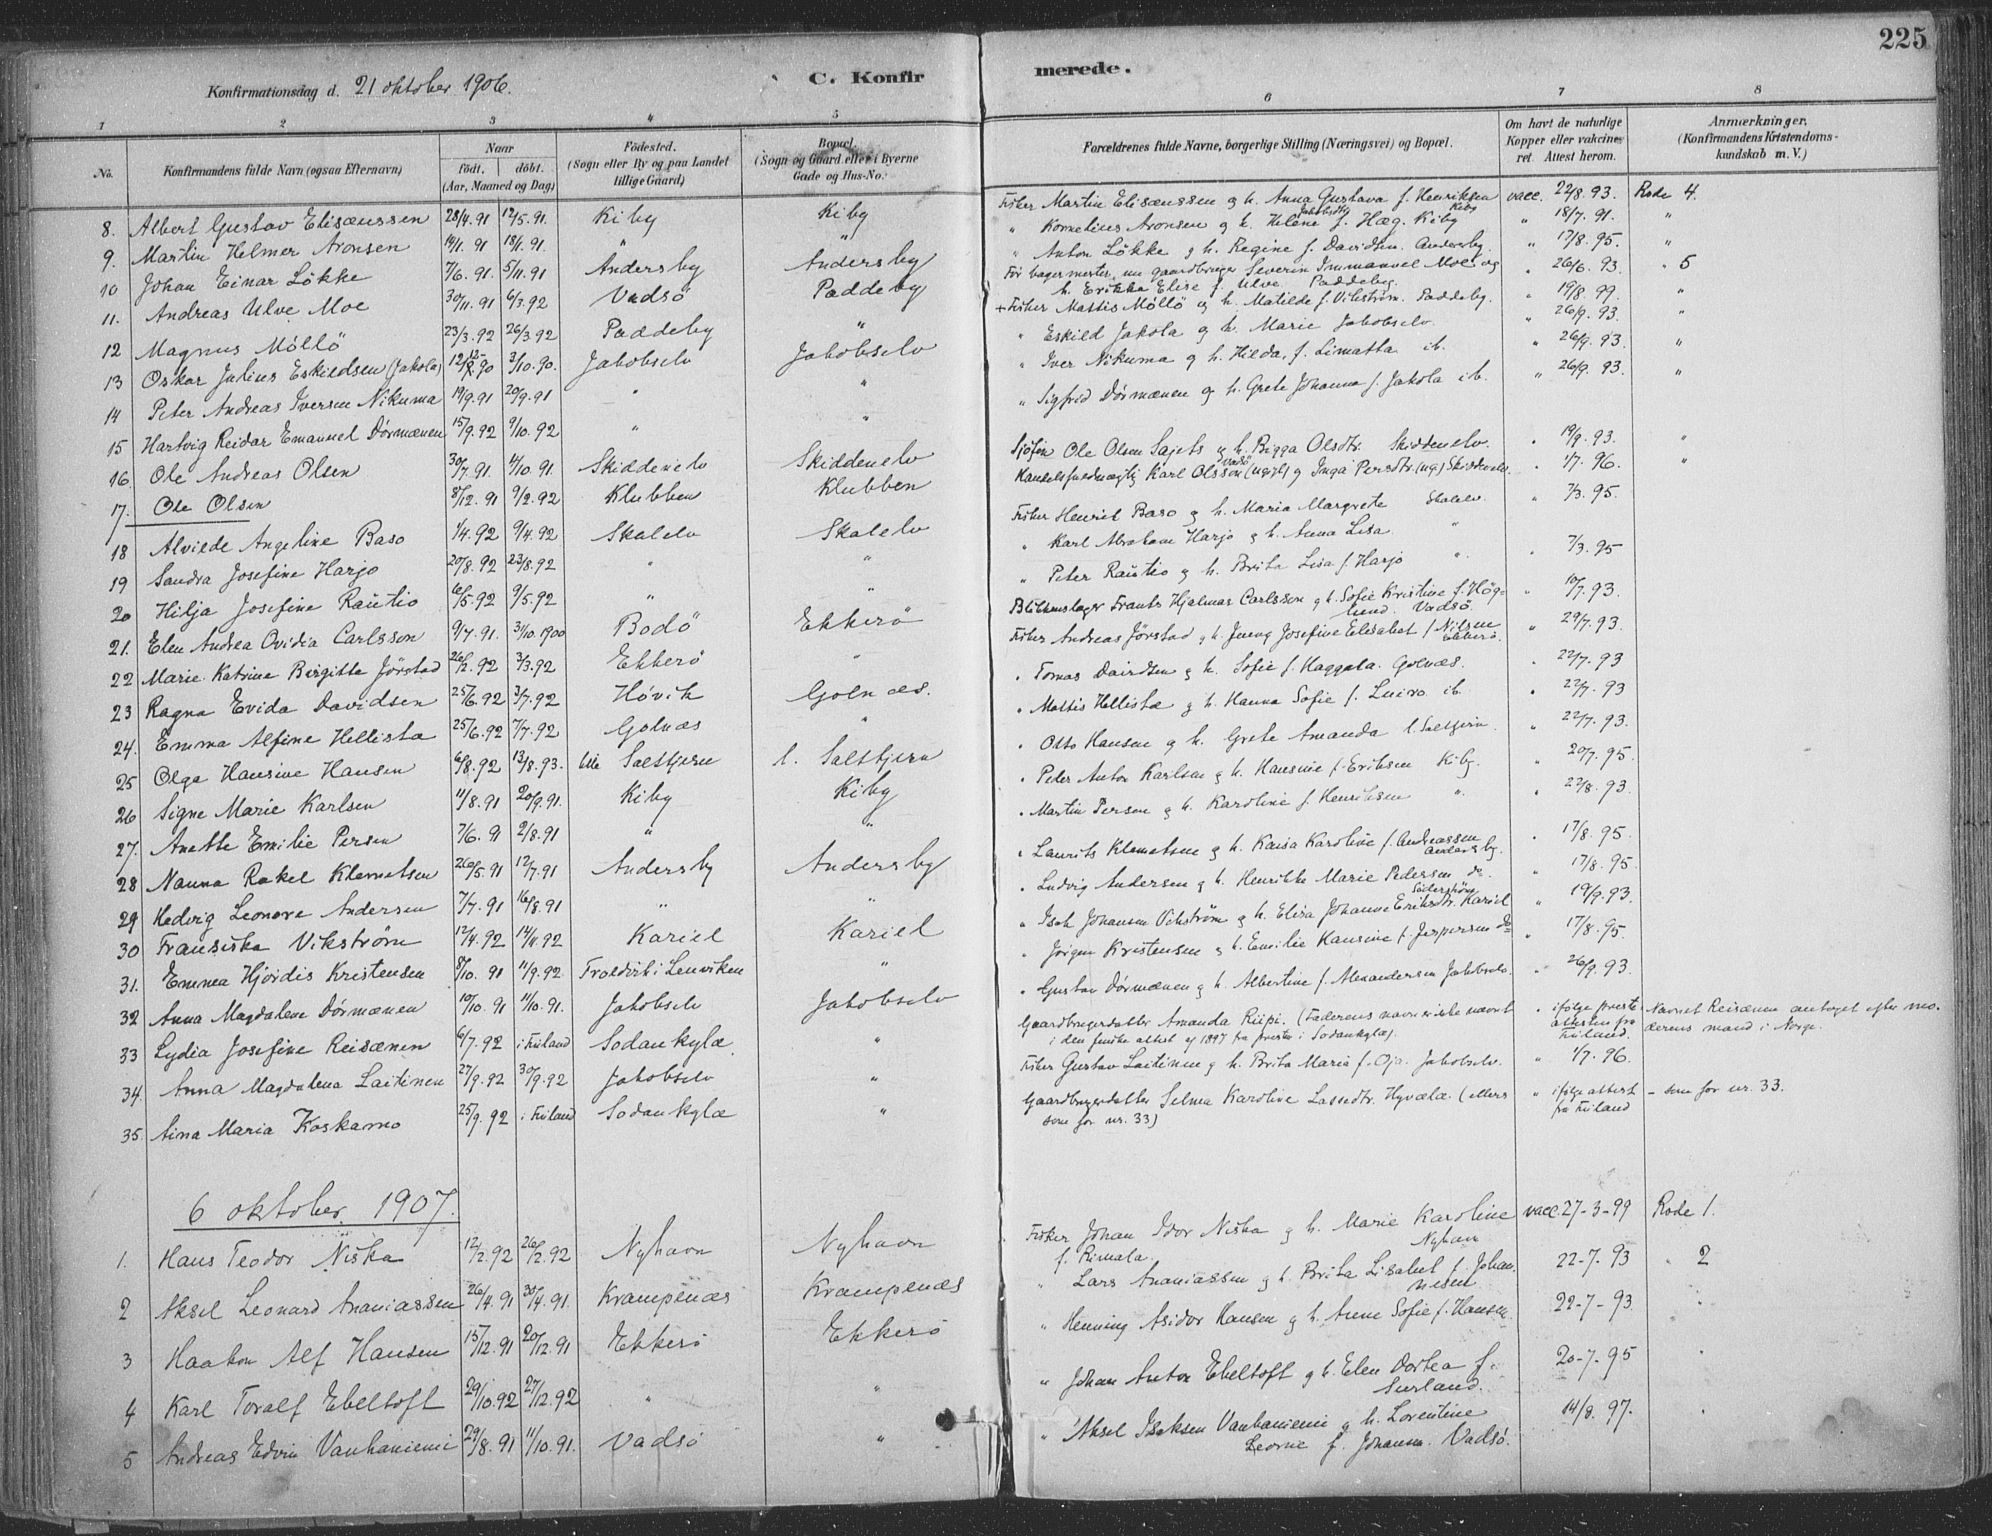 225
Konfirmationsdag d. 21 oktober 1906.
C. Konfirmerede.
1 2 3 4 5 6 7 8
No. Konfirmandens fulde Navn (ogsaa Efternavn) Naar født. døbt. (Aar, Maaned og Dag) Fødested. (Sogn eller By og paa Landet tillige Gaard) Bopæl. (Sogn og Gaard eller i Byerne Gade og Hus-No. Forældrenes fulde Navne, borgerlige Stilling (Næringsvei) og Bopæl. Om havt de naturlige Kopper eller vakcineret. Attest herom. Anmærkninger. (Konfirmandens Kristendomskundskab m. V.)
8. Albert Gustav Elisæussen 28/4.91 12/5.91. Kiby Kiby Fisker Martin Elisæussen og h. Anna Gustava f. Henriksen Kiby vacc. 22/8.93. Rode 4.
9. Martin Helmer Aronsen 14/1.91 18/1.91. " " " Kornelius Aronsen og h. Helene Jakobsdtr f. Hæg. Kiby " 18/7.91. "
10 Johan Einar Løkke 7/6.91. 5/11.91 Andersby Andersby " Anton Løkke og h. Regine f. Davidsen. Andersby. " 17/8.95. "
11. Andreas Ulve Moe 30/11.91 6/3.92 Vadsö Paddeby Før bagermester, nu gaardbruger Severin Immanuel Moe og h. Erikka Elise f. Ulve. Paddeby. " 26/6.93. " 5
12 Magnus Möllö 23/3.92 26/3.92 Paddeby " + Fisker Mattis Möllö og h. Matilde f. Vikström. Paddeby. " 19/8.99. "
13 Oskar Julius Eskildsen (Jakola) 3/10.90. Jakobselv Jakobselv " Eskild Jakola og h. Marie Jakobselv. " 26/9.93. "
14 Peter Andreas Iversen Nikuma 19/9.91 20/9.91 " " " Iver Nikuma og h. Hilda, f. Limatta ib. " 26/9.93. "
15 Hartvig Reidar Emanuel Dørmænen 15/9.92 9/10.92 " " " Sigfrid Dørmænen og h. Grete Johanna f. Jakola ib. " 26/9.93. "
16. Ole Andreas Olsen 30/7.91. 4/10.91. Skiddenelv Skiddenelv Sjøfin Ole Olsen Sajets og h. Bigga Olsdtr. Skiddenelv. " 19/9.93. "
17. Ole Olsen 8/12.91 9/2.92 Klubben Klubben Karl Olsson Vadsö (ugift) og Inga Persdtr. (ug) Skiddenelv. " 1/7.96. "
18 Alvilde Angeline Baso 1/4.92 9/4.92 Skalelv Skalelv Fisker Henrik Baso og h. Maria Margrete Skalelv. " 7/3.95.
19 Sandra Josefine Harjo 20/8.92 23/8.92 " " " Karl Abraham Harjo og h. Anna Lisa. "
20 Hilja Josefine Rautio 6/5.92 9/5.92 " " " Peter Rautio og h. Brita Lisa f. Harjo ". " 7/3.95
21. Elen Andrea Ovidia Carlsson 9/7.91. 31/10.1900 Bodö Ekkerö Blikkenslager Frants Hjalmar Carlsson og h. Sofie Kristine f. Höglund. Vadsö. " 10/7.93.
22 Marie Katrine Birgitte Jörstad 26/2.92 3/3.92 Ekkerö " Fisker Andreas Jörstad og h. Jenny Josefine Elisabet f. Nilsen Ekkerö. " 29/7.93.
23 Ragna Evida Davidsen 25/6.92 3/7.92 Høvik Golnæs. " Tomas Davidsen og h. Sofie f. Haggala. Golnæs. " 22/7.93
24. Emma Alfine Hellista 25/6.92 7/7.92 Golnæs " " Mattis Hellistæ og h. Hanna Sofie f. Luiro ib. " 22/7.93
25 Olga Hansine Hansen 6/8.92 13/8.93. lille Saltfjern l. Saltfjern " Otto Hansen og h. Grete Amanda l. Saltfjern. " 22/7.93.
26 Signe Marie Karlsen 11/8.91 20/9.91. Kiby Kiby " Peder Anton Karlsen og h. Hansine f. Eriksen Kiby. " 20/7.95.
27. Anette Emilie Persen 7/6.91 2/8.91 " " " Martin Persen og h. Karoline f. Henriksen ". " 22/8.93.
28 Nanna Rakel Klemetsen 26/5.91 12/7.91 Andersby Andersby " Laurits Klemetsen og h. Kaisa Karoline f. Andreassen Andersby. " 17/8.95.
29 Hedvig Leonore Andersen 7/7.91 16/8.91 " " " Ludvig Andersen og h. Henrikke Marie Pedersen do. " 17/8.95.
30 Fransiska Vikström 12/4.92 14/4.92 Kariel Kariel " Isak Johansen Vikström og h. Elisa Johanne Eriksdtr. Söderström Kariel " 19/9.93.
31. Emma Hjördis Kristensen 8/10.91 11/9.92 Troldvik i Lenviken " " Jørgen Kristensen og h. Emilie Hansine f. Jespersen do " 17/8.95.
32 Anna Magdalene Dørmænen 10/10.91 11/10.91. Jakobselv Jakobselv " Gustav Dørmænen og h. Albertine f. Alexandersen Jakobselv. " 26/9.93.
33 Lydia Josefine Reisænen 6/7.92 i Finland Sodankylæ. " Gaardbrugerdatter Amanda Riipi. (Faderens navn er ikke nævnt i den finske attest af 1897 fra presten i Sodankylæ). " ifølge presteattesten fra Finland. Navnet Reisænen antaget efter moderens mand i Norge.
34. Anna Magdalena Laitinen 27/9.92 30/9.92 Jakobselv " Fisker Gustav Laitinen og h. Brita Maria f. Oja. Jakobselv. " 1/7.96.
35. Aina Maria Koskamo 25/9.92 i Finland Sodankylæ " Gaardbrugerdatter Selma Karoline Lassedtr. Hyvælæ. (ellers som for nr. 33) " ifølge attest fra Finland – som for nr. 33.
6 oktober 1907.
1. Hans Teodor Niska 12/2.92 26/2.92 Nyhavn Nyhavn Fisker Johan Idor Niska og h. Marie Karoline f. Rimala. Nyhavn vacc. 27-3-99 Rode 1.
2 Aksel Leonard Ananiassen 26/4.91 30/4.91. Krampenæs Krampenæs " Lars Ananiassen og h. Brita Lisabet f. Johannesen. 22-7.93 " 2
3 Haakon Alf Hansen 15/12.91 20/12.91 Ekkerö Ekkerö " Henning Asidor Hansen og h. Anne Sofie f. Hansen. 22-7-93. "
4 Karl Toralf Ebeltoft 29/10.92 27/12.92 " " " Johan Anton Ebeltoft og h. Elen Dortea f. 20-7-95 "
5 Andreas Edvin Vanhaniemi 29/8.91 11/10.91. Vadsö " " Aksel Isaksen Vanhaniemi og h. Lorentine Leonie f. Johansen. Vadsö. 14/8.97. "